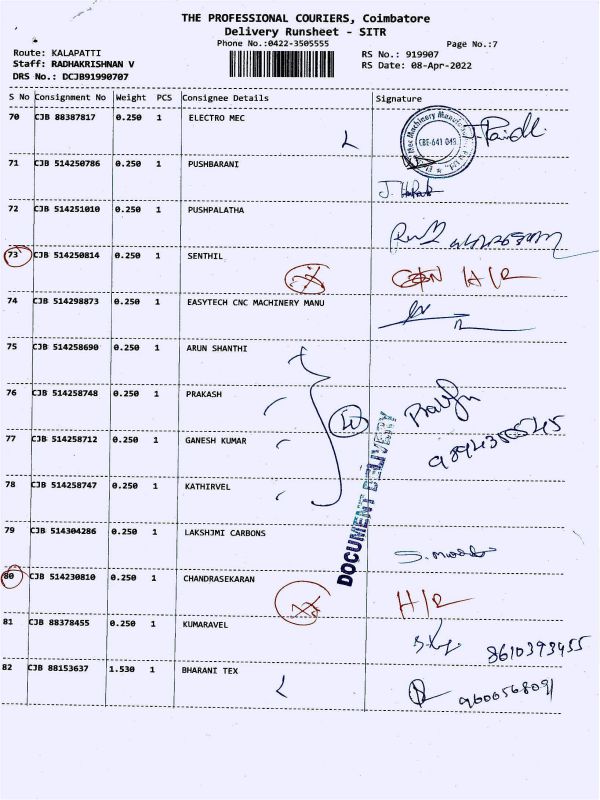 THE PROFESSIONAL COURIERS, Coimbatore
Delivery Runsheet - SITR
Phone No.:0422-3505555
Page No.:7
Route: KALAPATTI
RS No.: 919907
Staff: RADHAKRISHNAN V
RS Date: 08-Apr-2022
DRS No.: DCJB91990707
S No Consignment No Weight PCS Consignee Details Signature
70 CJB 88387817 0.250 1 ELECTRO MEC
CBE-641 048.
71 CJB 514250786 0.250 1 PUSHBARANI
72 CJB 514251010 0.250 1 PUSHPALATHA
73 CJB 514250814 0.250 1 SENTHIL H/R
74 CJB 514298873 0.250 1 EASYTECH CNC MACHINERY MANU
75 CJB 514258690 0.250 1 ARUN SHANTHI
76 CJB 514258748 0.250 1 PRAKASH
77 CJB 514258712 0.250 1 GANESH KUMAR
78 CJB 514258747 0.250 1 KATHIRVEL
DOCUMENT DELIVERY
79 CJB 514304286 0.250 1 LAKSHJMI CARBONS
80 CJB 514230810 0.250 1 CHANDRASEKARAN H/R
81 CJB 88378455 0.250 1 KUMARAVEL 8610393455
82 CJB 88153637 1.530 1 BHARANI TEX 9600568091